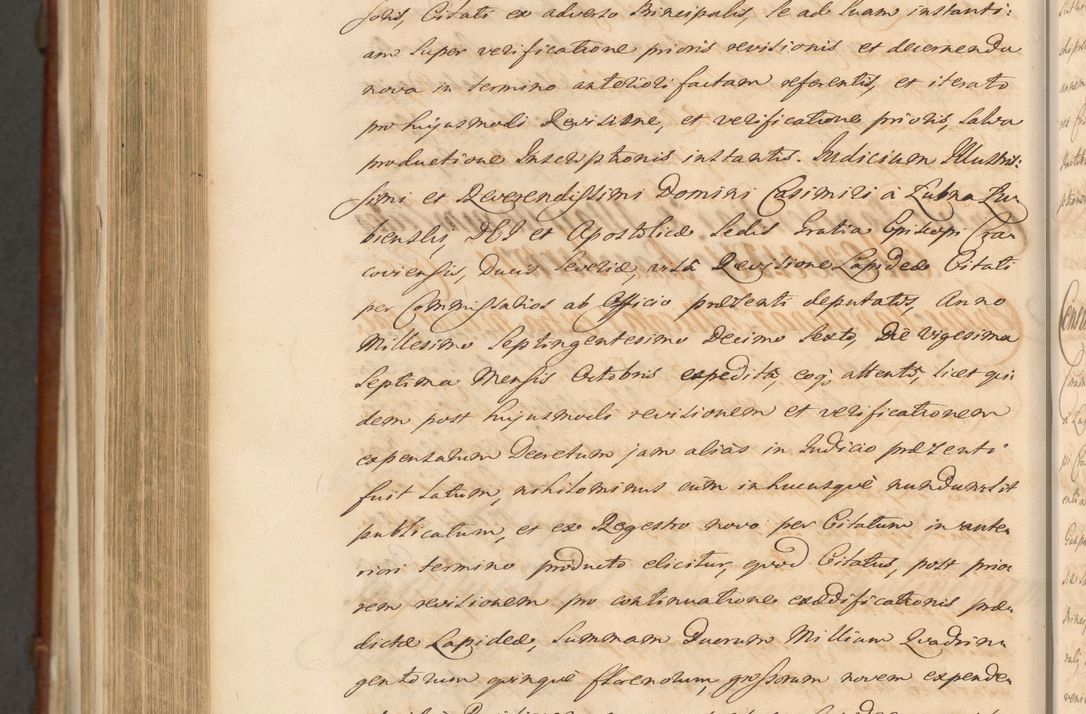 soris, Citati ex adverso Principalis, se ad suam instanti:
am super verificatione prioris revisionis et decernenda
nova in termino anteriori factam referentis, et iterato
pro hujusmodi Revisione, et verificatione prioris, salva
productione Inscriptionis instantis. Judicium Illustris:
simi et Reverendissimi Domini Casimiri à Łubna Łu
biensky, DEI et Apostolicæ Sedis Gratia Episcopi Cra
coviensis, Ducis Severiæ, visâ Revisione Lapideæ Citati
per Commissarios ab Officio præsenti deputatos, Anno
Millesimo Septingentesimo Decimo Sexto, Die Vigesima
Septima Mensis Octobris expeditâ, eoq; attento, licet qui
dem post hujusmodi revisionem et verificationem
expensarum Decretum jam aliàs in Judicio præsenti
fuit latum, nihilominus cùm inhucusquè nundum sit
publicatum, et ex Regestro novo per Citatum in ante
riori termino producto elicitur, quod Citatus, post prio
rem revisionem pro continuatione exædificationis præ
dictæ Lapideæ, Summam Duorum Millium Quadrin
gentorum quinquè florenorum, grossorum novem expende